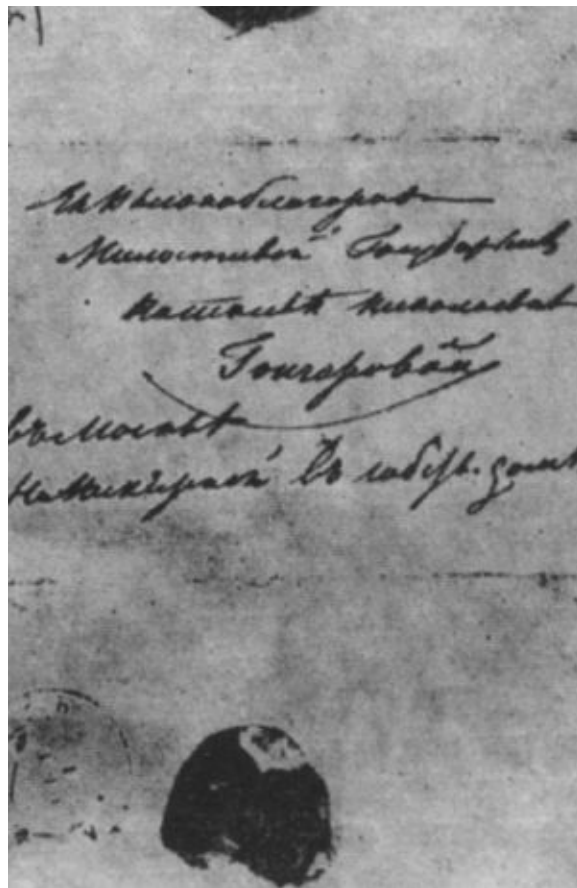 Ея Высокоблагород
Милостивой Государынѣ
Натальѣ Николаевнѣ
Гончаровой
въ Москвѣ
На Никитской въ собств. домѣ